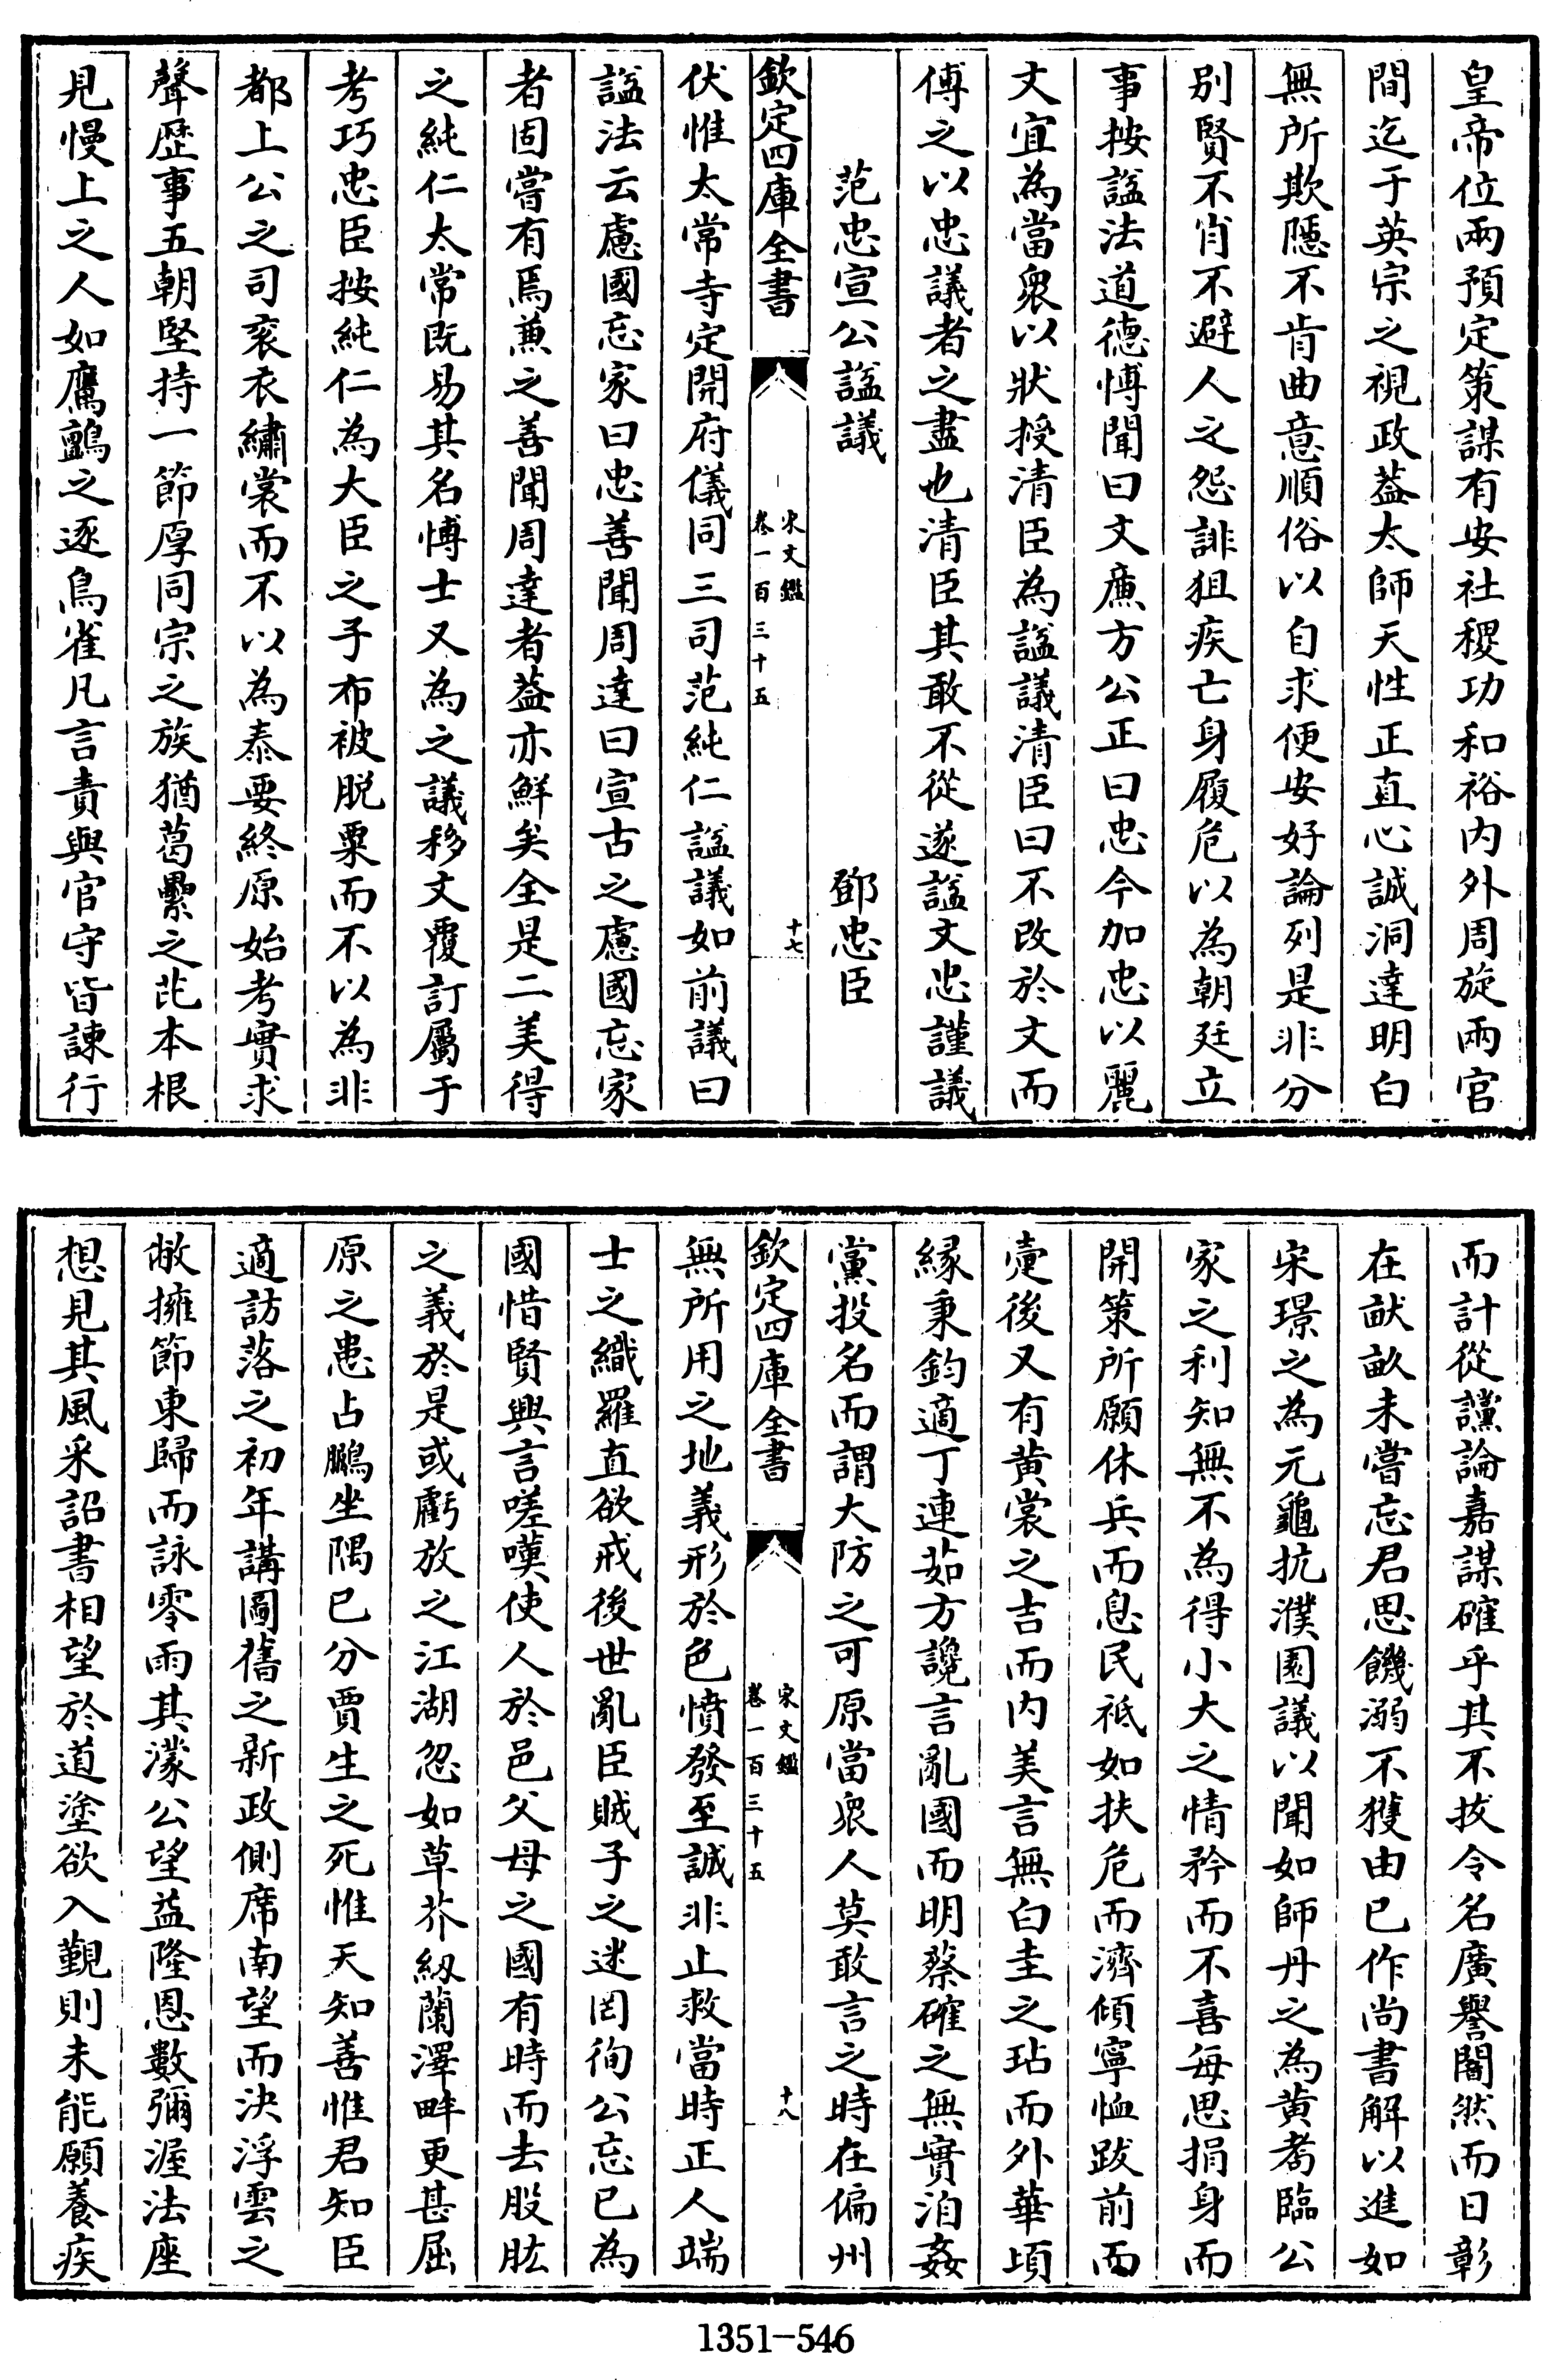 皇帝位兩預定策謀有安社稷功和裕内外周旋兩宫
間迄于英宗之視政葢太師天性正直心誠洞達明白
無所欺隱不肯曲意順俗以自求便安好論列是非分
别賢不肖不避人之怨誹狙疾亡身履危以為朝廷立
事按諡法道德愽聞曰文亷方公正曰忠今加忠以麗
文宜為當衆以狀授清臣為諡議清臣曰不改於文而
傅之以忠議者之盡也清臣其敢不從遂諡文忠謹議
范忠宣公諡議　鄧忠臣
欽定四庫全書
宋文鑑
卷一百三十五
十七
伏惟太常寺定開府儀同三司范純仁諡議如前議曰
諡法云慮國忘家曰忠善聞周達曰宣古之慮國忘家
者固嘗有焉兼之善聞周達者葢亦鮮矣全是二美得
之純仁太常既易其名愽士又為之議移文覆訂屬于
考巧忠臣按純仁為大臣之子布被脱粟而不以為非
都上公之司衮衣繡裳而不以為泰要終原始考實求
聲歴事五朝堅持一節厚同宗之族猶葛虆之芘本根
見慢上之人如鷹鸇之逐鳥雀凡言責與官守皆諫行
而計從讜論嘉謀確乎其不拔令名廣譽闇然而日彰
在畎畝未嘗忘君思饑溺不獲由已作尚書解以進如
宋璟之為元龜抗濮園議以聞如師丹之為黄耉臨公
家之利知無不為得小大之情矜而不喜每思捐身而
開策所願休兵而息民祗如扶危而濟傾寧恤跋前而
疐後又有黄裳之吉而内美言無白圭之玷而外華頃
緣秉鈞適丁連茹方讒言亂國而明蔡確之無實洎姦
黨投名而謂大防之可原當衆人莫敢言之時在偏州
欽定四庫全書
宋文鑑
卷一百三十五
十八
無所用之地義形於色憤發至誠非止救當時正人端
士之織羅直欲戒後世亂臣賊子之迷罔徇公忘已為
國惜賢興言嗟嘆使人於邑父母之國有時而去股肱
之義於是或虧放之江湖忽如草芥紉蘭澤畔更甚屈
原之患占鵩坐隅已分賈生之死惟天知善惟君知臣
適訪落之初年講圖舊之新政側席南望而決浮雲之
敝擁節東歸而詠零雨其濛公望益隆恩數彌渥法座
想見其風采詔書相望於道塗欲入覲則未能願養疾
1351-546